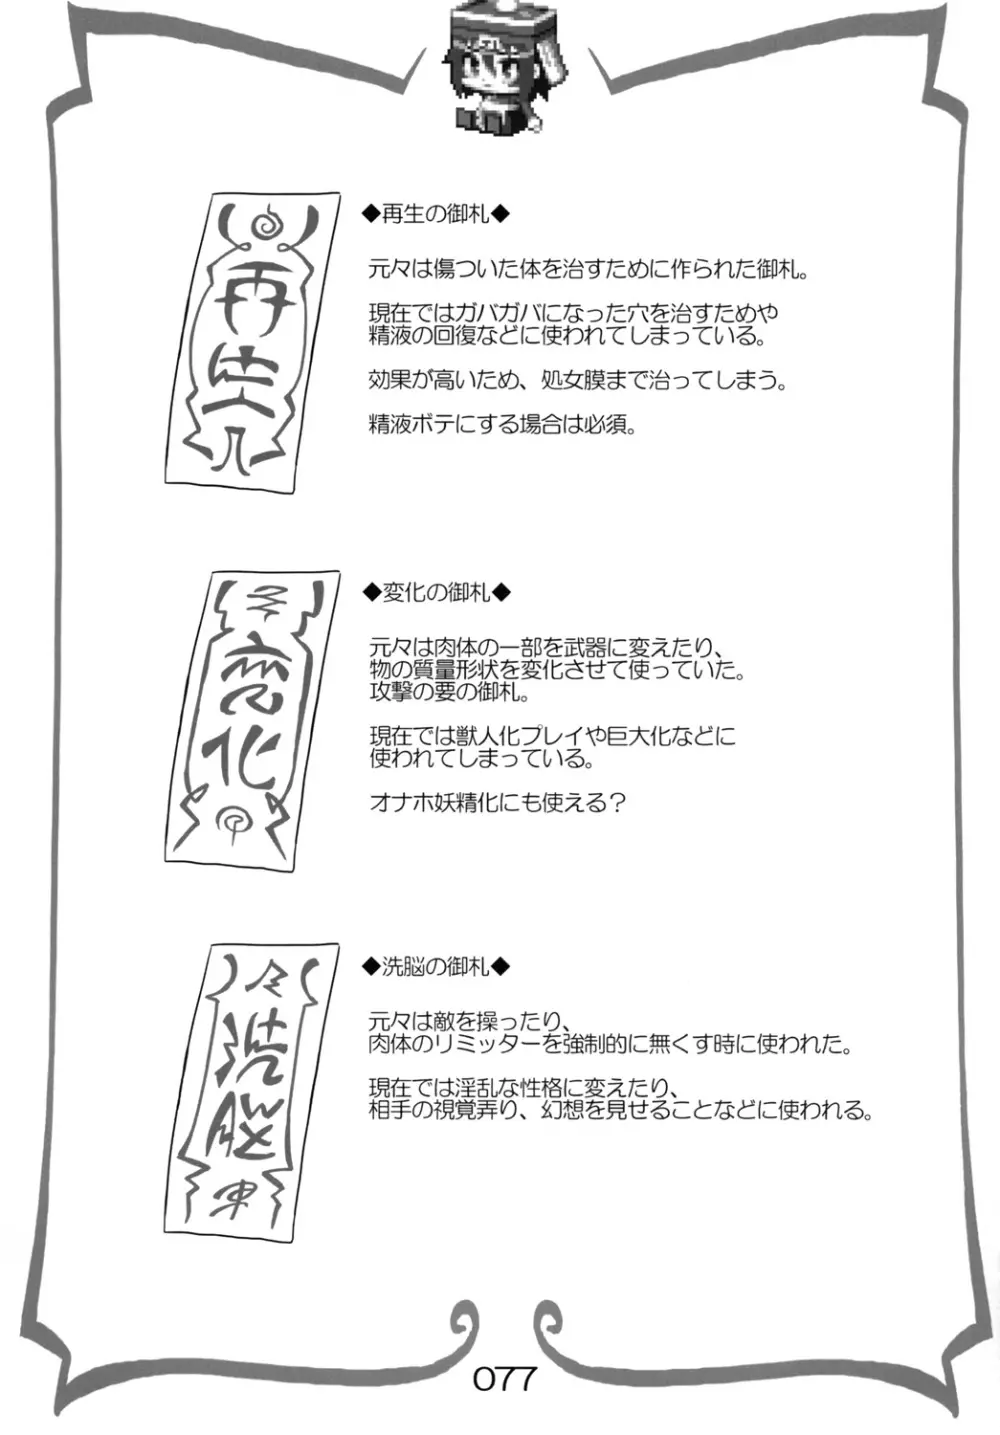 再生
◆再生の御札◆
元々は傷ついた体を治すために作られた御札。
現在ではガバガバになった穴を治すためや
精液の回復などに使われてしまっている。
効果が高いため、処女膜まで治ってしまう。
精液ボテにする場合は必須。
変化
◆変化の御札◆
元々は肉体の一部を武器に変えたり、
物の質量形状を変化させて使っていた。
攻撃の要の御札。
現在では獣人化プレイや巨大化などに
使われてしまっている。
オナホ妖精化にも使える？
洗脳
◆洗脳の御札◆
元々は敵を操ったり、
肉体のリミッターを強制的に無くす時に使われた。
現在では淫乱な性格に変えたり、
相手の視覚弄り、幻想を見せることなどに使われる。
077